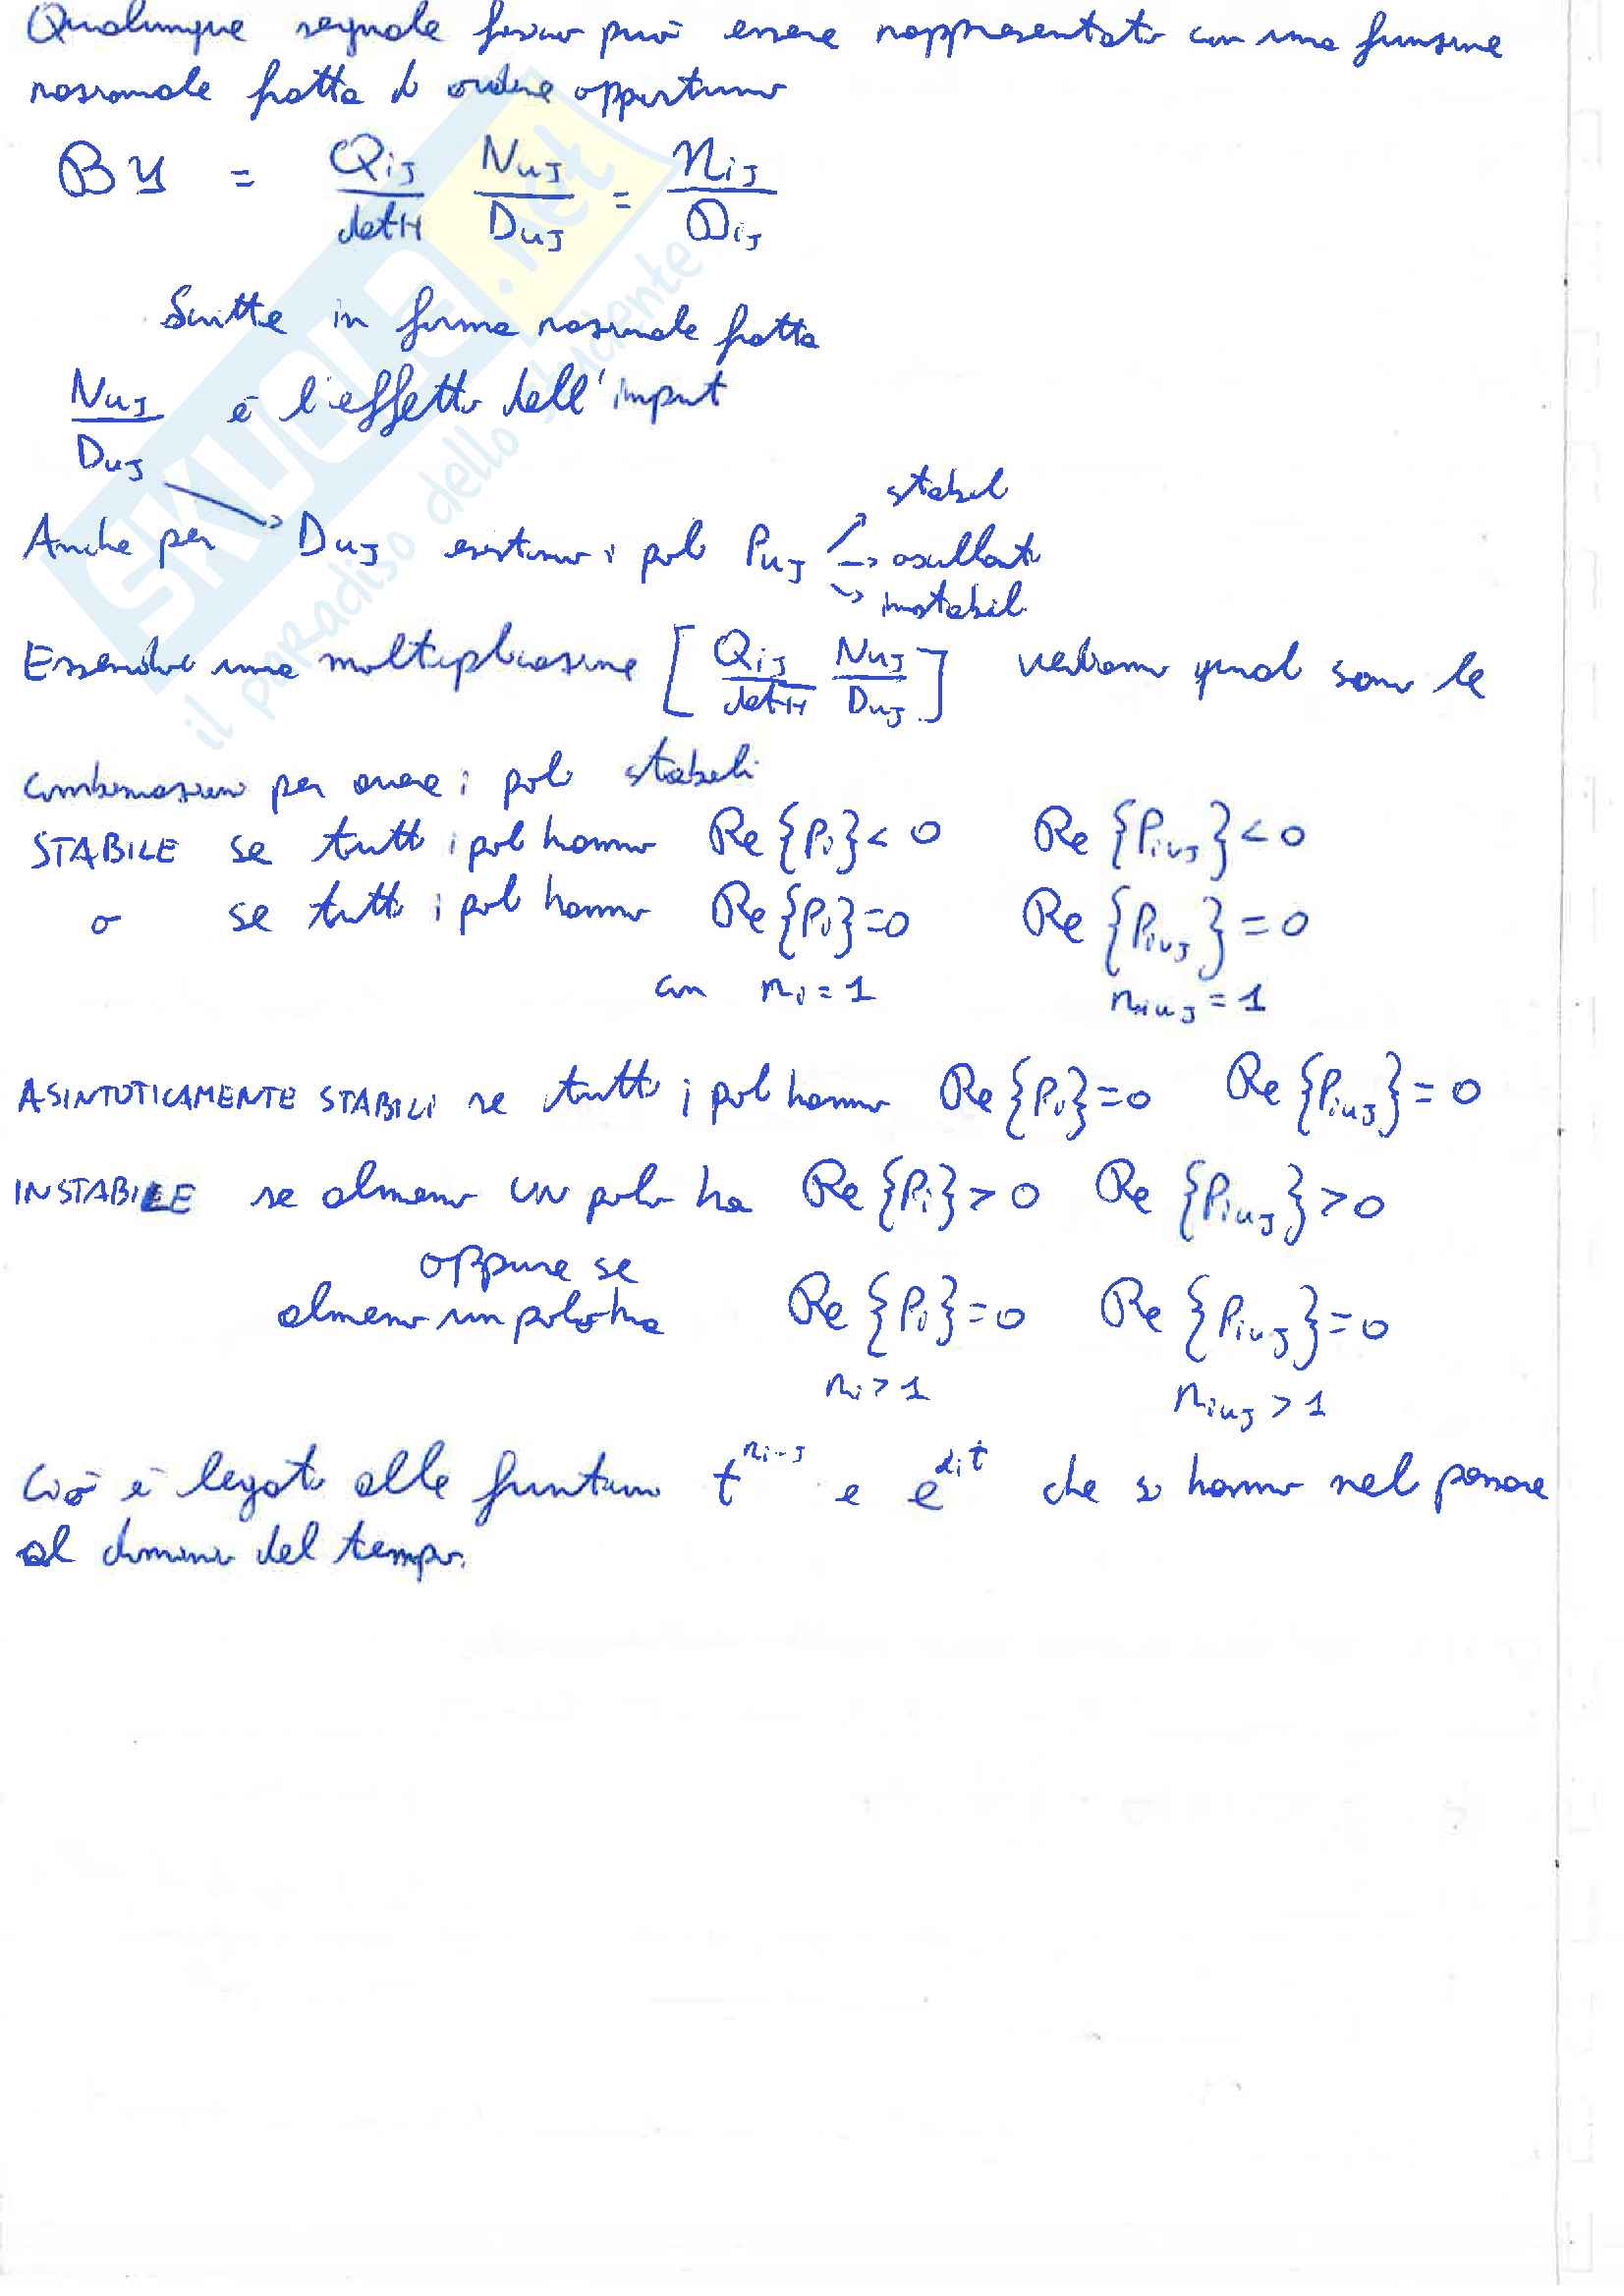 Qualunque segnale fisico può essere rappresentato con una funzione
razionale fratta di ordine opportuno
By = Qij/detH NuJ/DuJ = nij/Dij
Scritte in forma razionale fratta
NuJ/DuJ è l'effetto dell'input
stabili
Anche per → DuJ esistono i poli PuJ → oscillanti
instabili
Essendo una moltiplicazione [Qij/detH NuJ/DuJ] vediamo quali sono le
combinazioni per avere i poli stabili
STABILE se tutti i poli hanno Re{Pi}<0 Re{PiuJ}<0
o se tutti i poli hanno Re{Pi}=0 Re{PiuJ}=0
con ni=1 niuJ=1
ASINTOTICAMENTE STABILI se tutti i poli hanno Re{Pi}=0 Re{PiuJ}=0
INSTABILE se almeno UN polo ha Re{Pi}>0 Re{PiuJ}>0
oppure se
almeno un polo ha Re{Pi}=0 Re{PiuJ}=0
ni>1 niuJ>1
Ciò è legato alle funzioni t^ni-J e e^αit che si hanno nel passare
al dominio del tempo.
SKUOLA.net
il paradiso dello studente